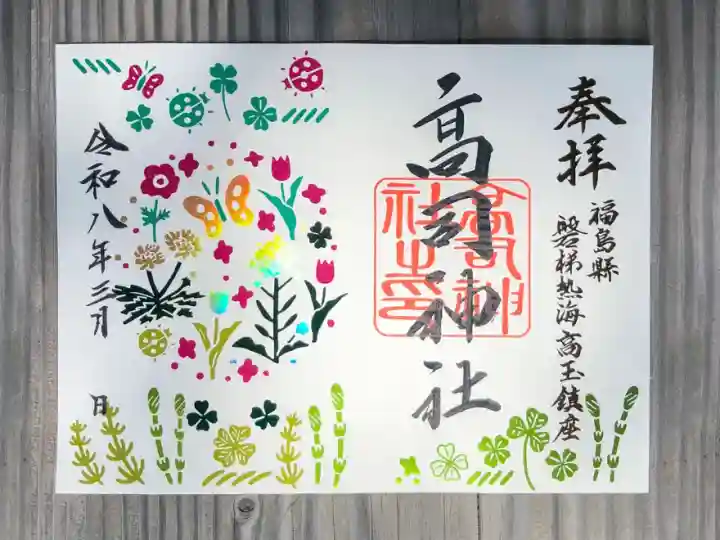 奉拝
福島縣
磐梯熱海高玉鎮座
高司神社
高司神
社之印
令和八年三月 日